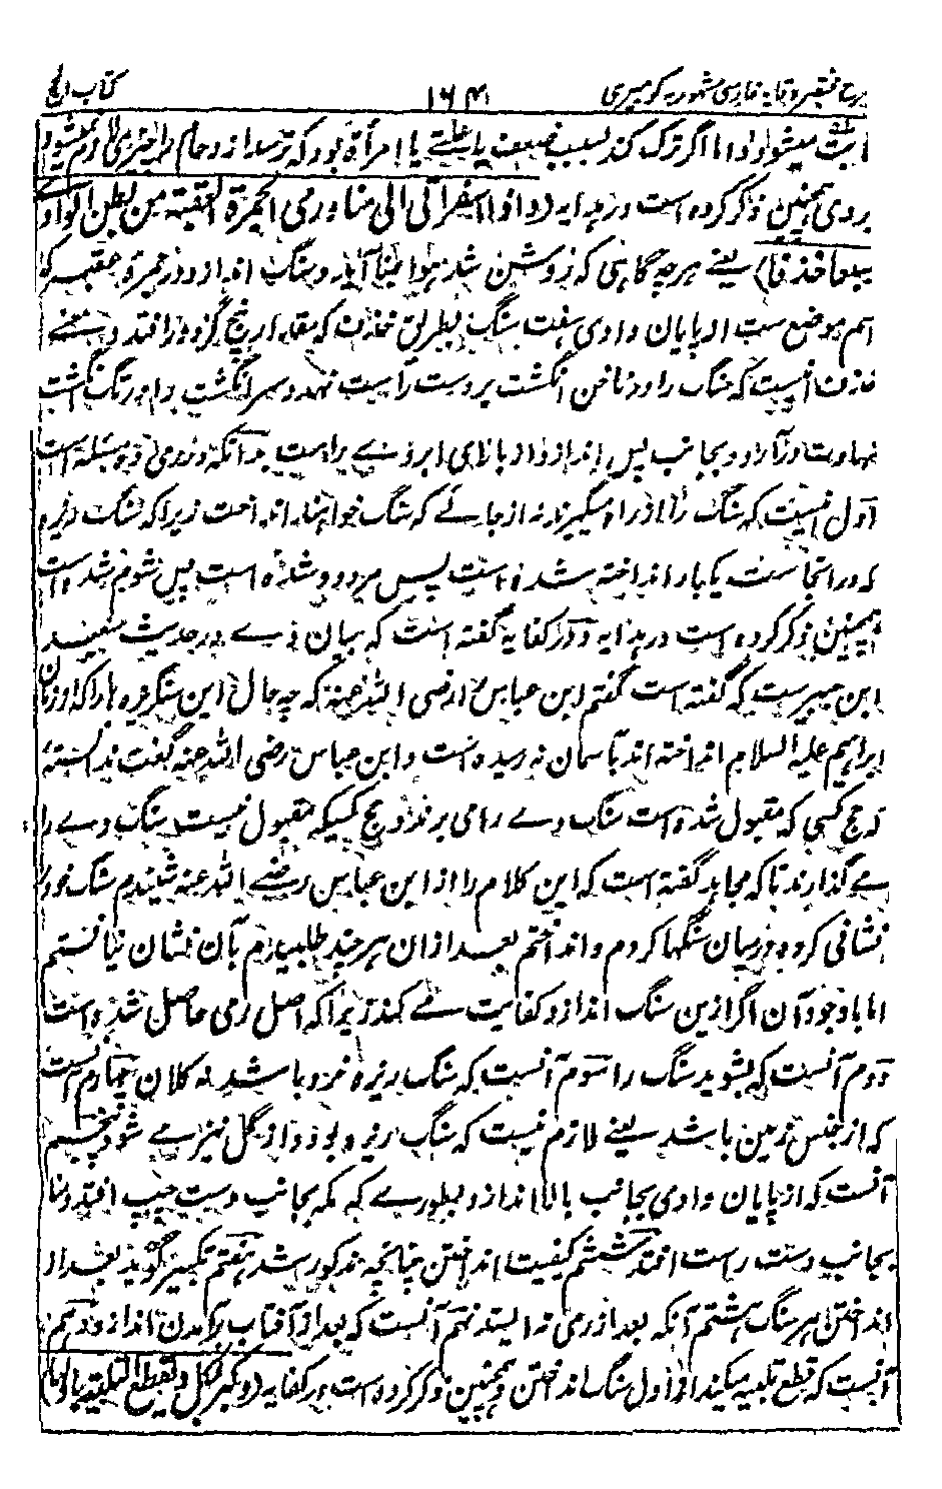 شرح مختصر وقایه فارسی مشهور به کرمیری ۱۶۴ کتاب الحج
میشود واما اگر ترک کند بسبب ضعف یا علتے یا امرأة بود که ترسد از زحام
بروی همچنین ذکر کرده است در هدایه (واذا اسفر اتی الی منا و رمی الجمرة العقبة من بطن الوادی
سبعا خذفا) یعنے هر چه گاهی که روشن شد بمنا آید و سنگ اندازد در جمره عقبه که
اسم موضع ست از پایان وادی هفت سنگ بطریق خذف که مقدار پنج گز دور افتد و معنے
خذف آنست که سنگ را در ناخن انگشت بر دست راست نهد و سر انگشت
و بجانب پس اندازد از بالای ابروے راست بدانکه در رمی ده مسئله است
اول آنست که سنگ را از راه میگیرند نه از جائے که سنگ خواهند انداخت زیرا که سنگ ریزه
که در انجا ست یکبار انداخته شده است پس مردود شده است پس شوم شده است
همچنین ذکر کرده است در هدایه و در کفایه گفته است که بیان وے در حدیث سعید
ابن جبیر ست که گفته است گفتم ابن عباس را رضی الله عنه که چه حال این سنگریزه ها را که از زمان
ابراهیم علیه السلام انداخته اند تا بآسمان نرسیده است و ابن عباس رضی الله عنه گفت ندانسته
که حج کسی که مقبول شده است سنگ وے را می برند و حج کسیکه مقبول نیست سنگ وے را
مے گذارند تا که مجاهد گفته است که این کلام را از ابن عباس رضے الله عنه شنیدم سنگ خود را
نشانی کرده در میان سنگها کردم و انداختم بعد ازان هر چند طلبیدم بآن نشان نیافتم
اما با وجود آن اگر ازین سنگ اندازد کفایت مے کند زیرا که اصل رمی حاصل شده است
دوم آنست که بشوید سنگ را سوم آنست که سنگ ریزه خرد باشد نه کلان چهارم آنست
که از جنس زمین باشد یعنے لازم نیست که سنگ ریزه بود و از گل نیز مے شود پنجم
آنست که از پایان وادی بجانب بالا اندازد بطورے که مکه بجانب دست چپ افتد و منا
بجانب دست راست افتد ششم کیفیت انداختن چنانچه مذکور شد هفتم تکبیر گوید بعد از
انداختن هر سنگ هشتم آنکه بعد از رمی نه ایستد نهم آنست که بعد از آفتاب برآمدن اندازد دهم
آنست که قطع تلبیه میکند از اول سنگ انداختن و همچنین ذکر کرده است در کفایه (و کبر لکل و قطع التلبیة باولها)